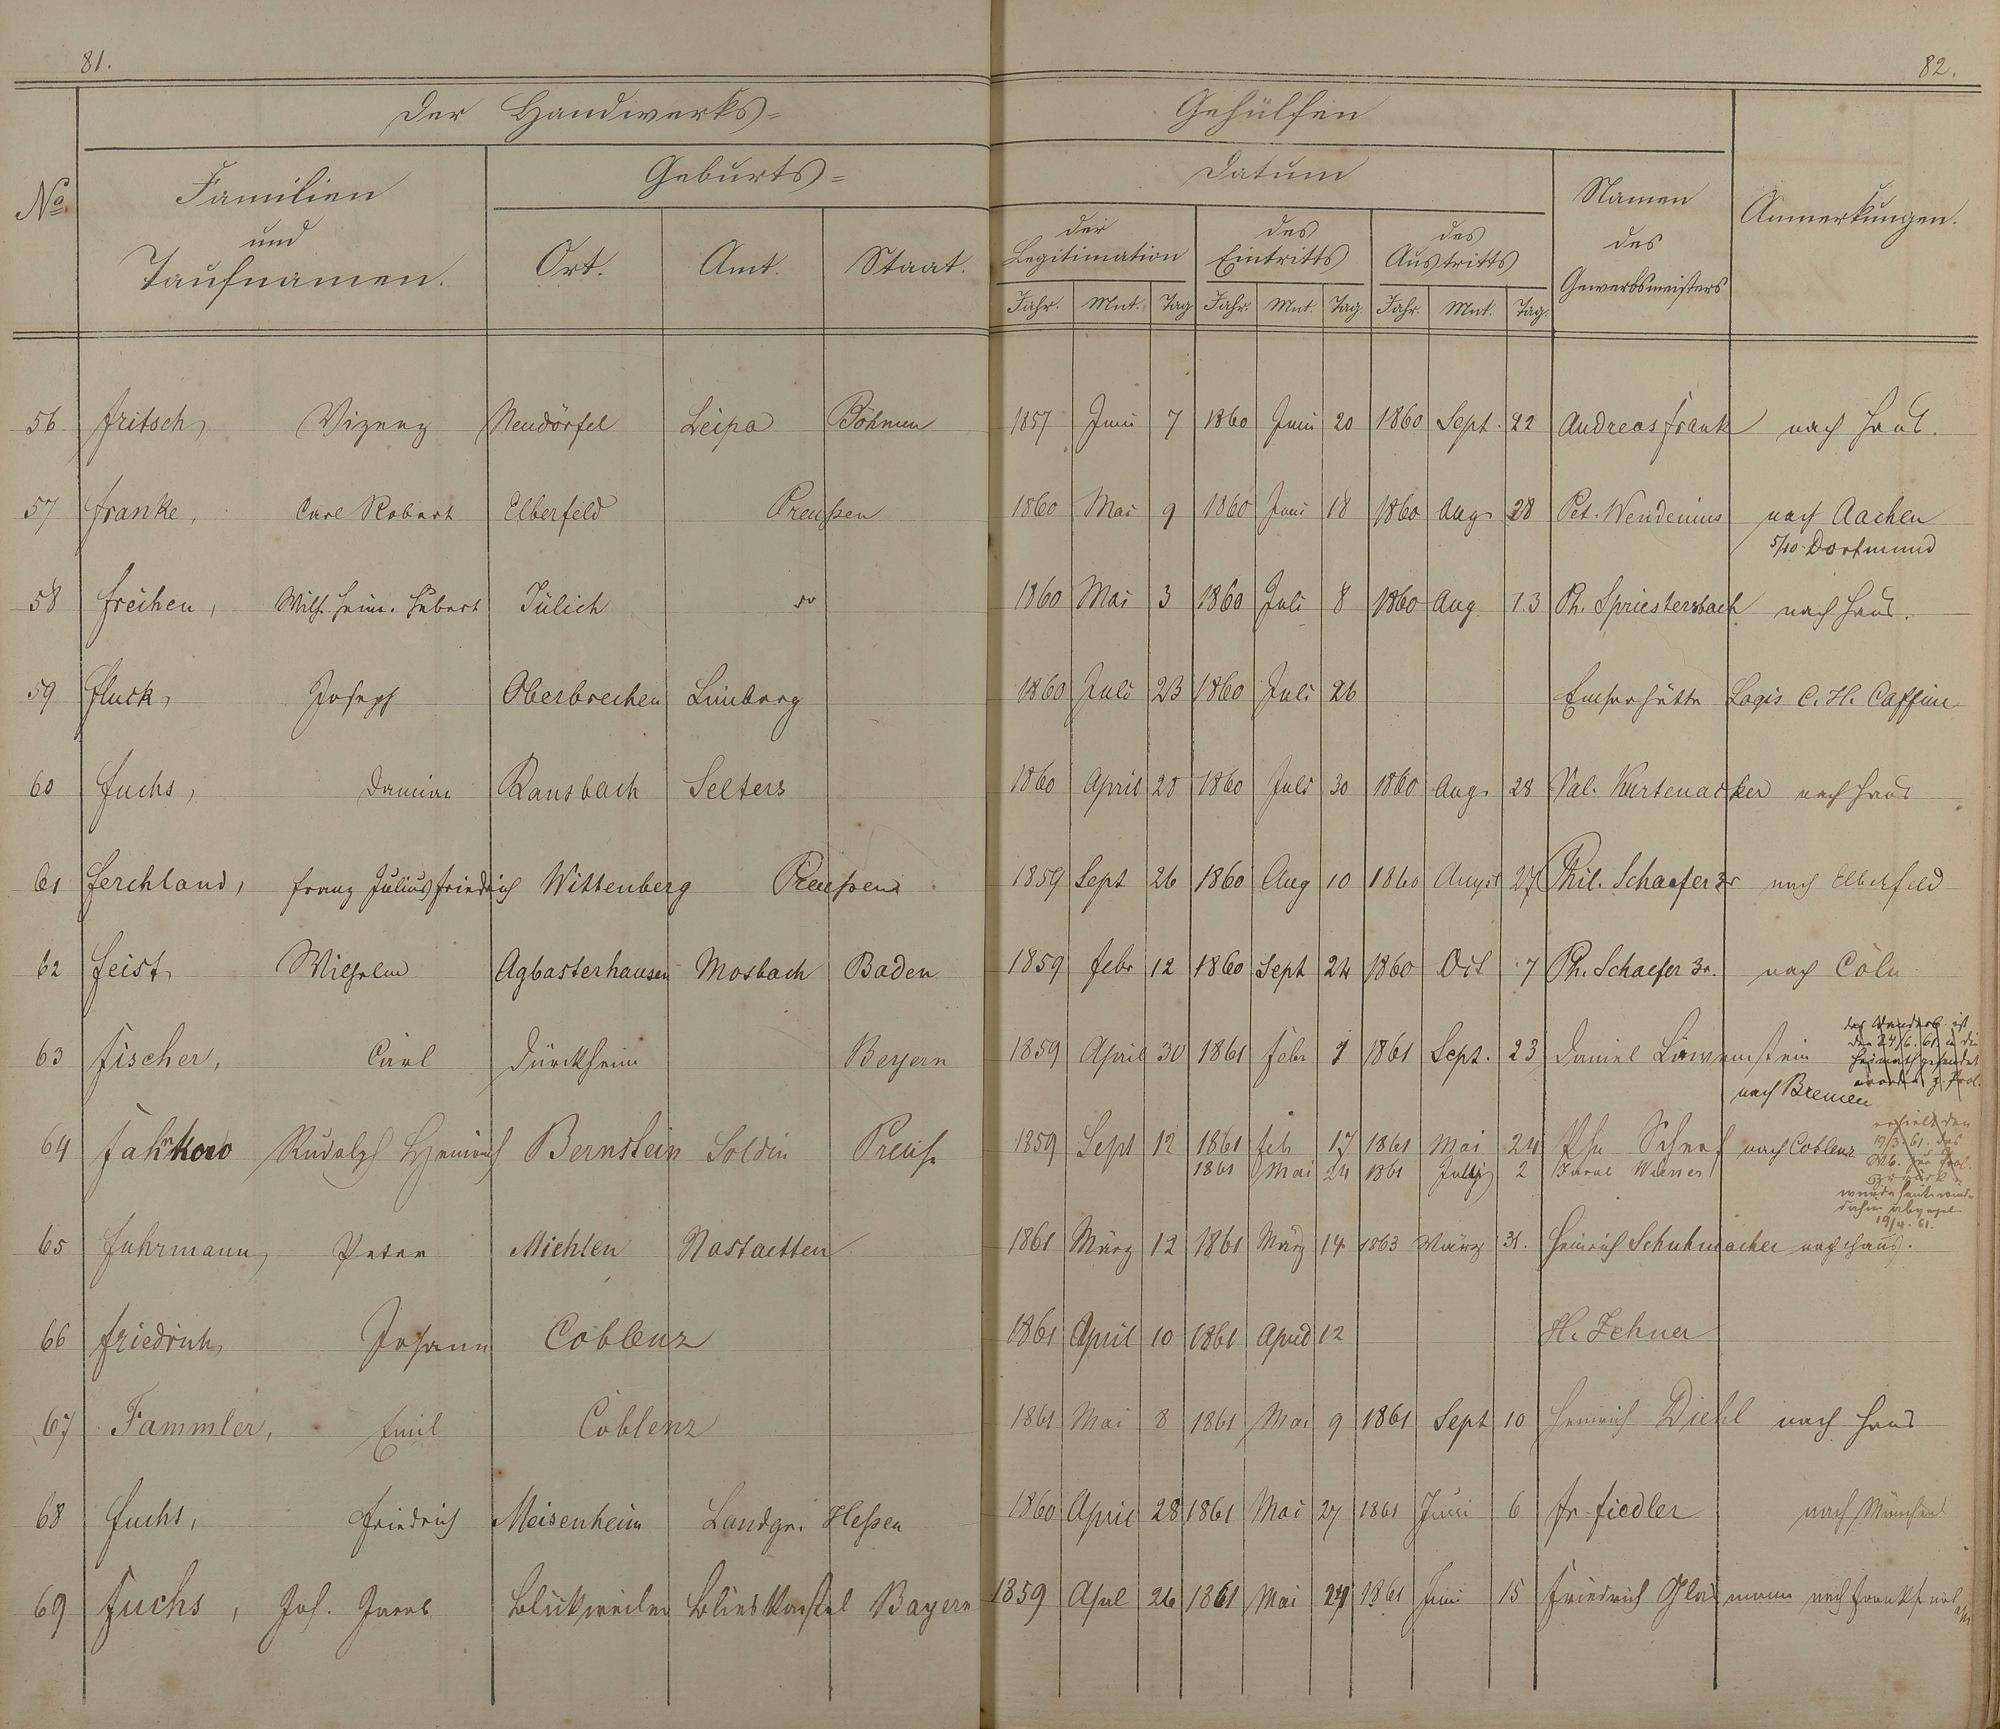 81.
82.
Der Handwerks=
Gehülfen
No
Familien
und
Taufnamen.
Geburts=
Ort.
Amt.
Staat.
Datum
der
Legitimation
des
Eintritts
des
Austritts
Jahr. Mnt. Tag Jahr. Mnt. Tag Jahr. Mnt. Tag.
Namen
des
Gewerbsmeisters
Anmerkungen.
56 Fritsch, Vizenz Neudörfel Leipa Böhmen 1857 Juni 7 1860 Juni 20 1860 Sept. 22 Andreas Frank nach Haus.
57 Franke, Carl Robert Elberfeld Preußen 1860 Mai 9 1860 Juni 18 1860 Aug. 28 Pet. Wendenius nach Aachen
5/10 Dortmund
58 Freihen, Wilh. Heinr. Hubert Jülich do 1860 Mai 3 1860 Juli 8 1860 Aug 13 Ph. Spriestersbach nach Haus.
59 Fluck, Joseph Oberbrechen Limburg 1860 Juli 23 1860 Juli 26 Emserhütte Logis C. H. Caffine
60 Fuchs, Damian Ransbach Selters 1860 April 28 1860 Juli 30 1860 Aug. 28 Val. Kurtenacker nach Haus
61 Ferchland, Franz Julius Friedrich Wittenberg Preußen 1859 Sept 26 1860 Aug 10 1860 August 27 Phil. Schaefer 3r nach Elberfeld
62 Feist, Wilhelm Agbasterhausen Mosbach Baden 1859 Febr 12 1860 Sept 24 1860 Oct 7 Ph. Schaefer 3r. nach Cöln
63 Fischer, Carl Dürckheim Beyern 1859 April 30 1861 Febr 1 1861 Sept. 23 Daniel Löwenstein
das Wanderb. ist
den 24/6. 61. in die
Heimath gesendet
worden z. Prol.
nach Bremen
64 Fahrkow Rudolph Heinrich Bernstein Soldin Preuß 1859 Sept 12 1861 Feb 17 1861 Mai 24 Phn Scherf nach Coblenz
1861 Mai 24 1861 July 2 Jacob Wiener
erhielt den
19/3. 61. das
Wb. zur Prol.
zurück
wurde heute wieder
dahin abgeg.
19/4. 61.
65 Fuhrmann, Peter Miehlen Nastaetten 1861 März 12 1861 März 14 1863 März 31. Heinrich Schuhmacher nach Haus.
66 Friedrich, Johann Coblenz 1861 April 10 1861 April 12 H. Zehner
67 Fammler, Emil Coblenz 1861 Mai 8 1861 Mai 9 1861 Sept 10 Heinrich Diehl nach Haus
68 Fuchs, Friedrich Meisenheim Landgr. Heßen 1860 April 28 1861 Mai 27 1861 Juni 6 Fr. Fiedler nach München
69 Fuchs, Joh. Jacob Blickweiler Blieskastel Bayern 1859 Apl 26 1861 Mai 29 1861 Juni 15 Friedrich Glasmann nach Frankfurt a/M